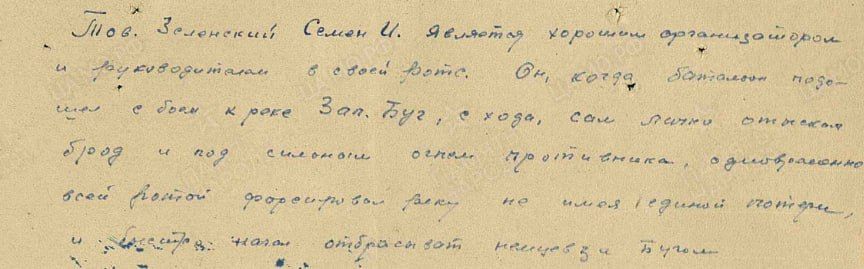 Тов. Зеленский Семен И. является хорошим организатором
и руководителем в своей роте. Он, когда баталион подо-
шел с боем к реке Зап. Буг, с хода, сам лично отыскал
брод и под сильным огнем противника, одновременно
всей ротой форсировал реку не имея единой потери,
и быстро начал отбрасыват немцев за Бугом